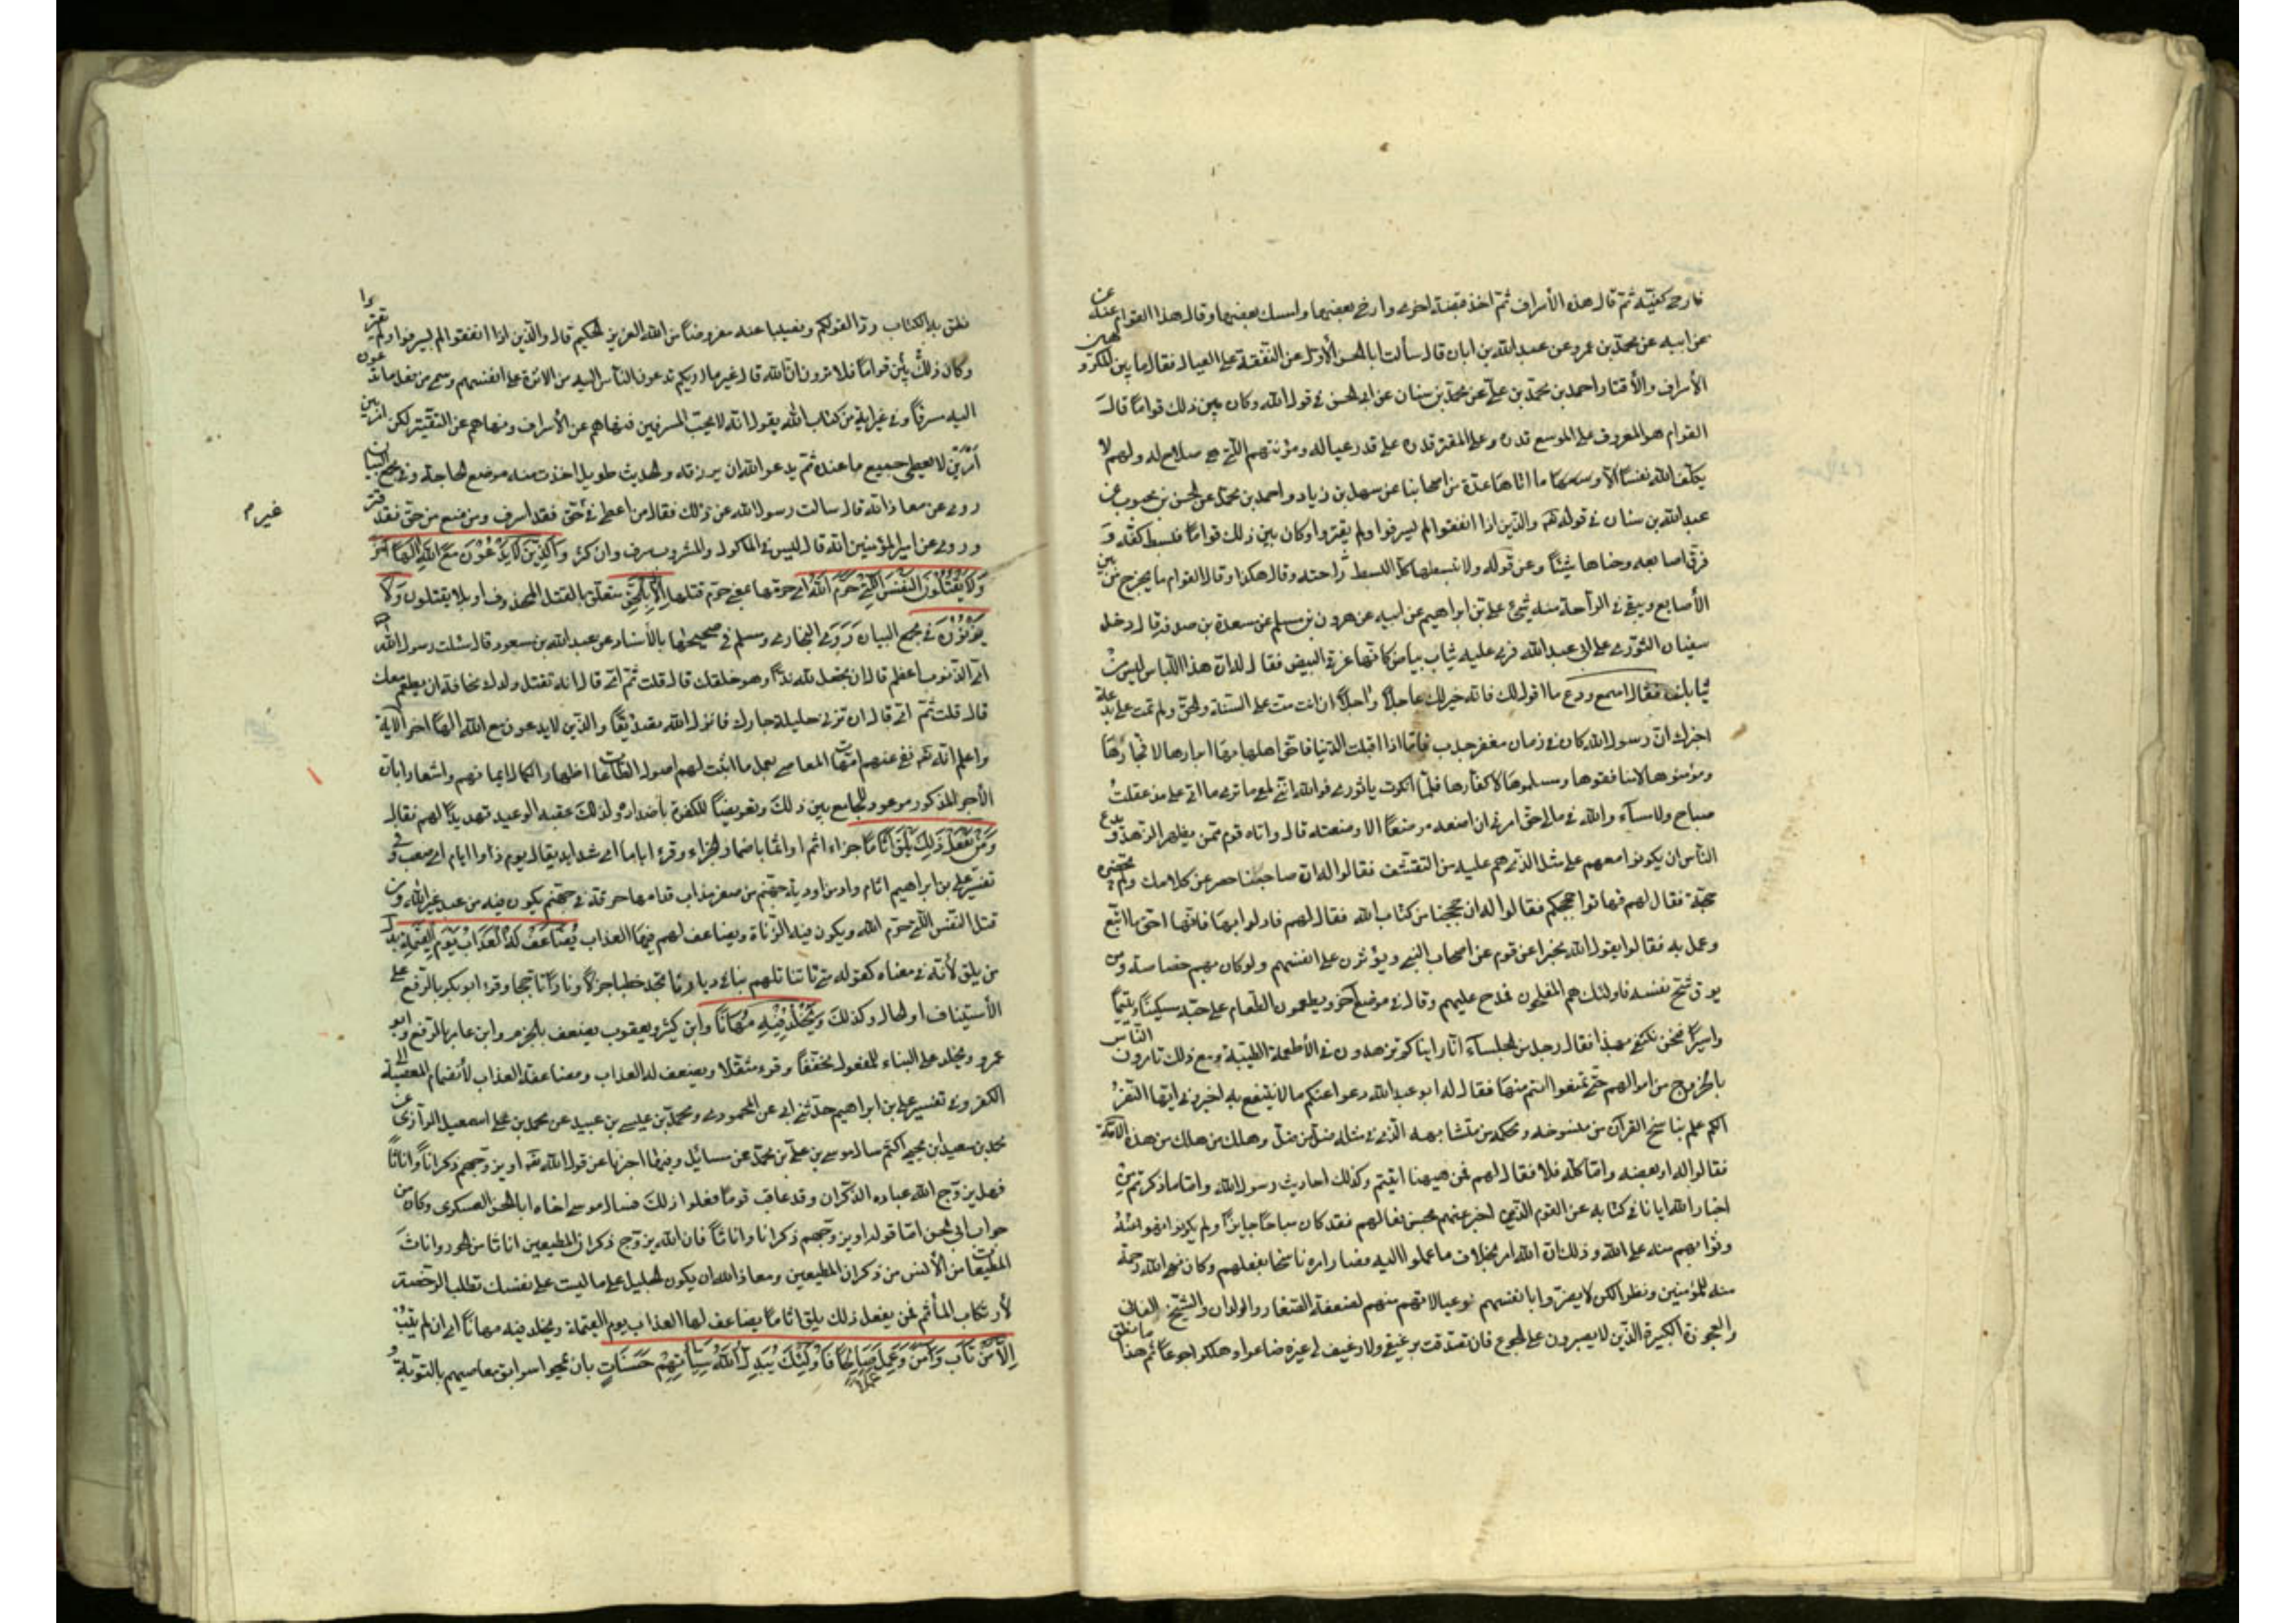 فارخى كفيه ثم قال هذه الأسراف ثم اخذ قبضة اخرى وارخى بعضها وامسك بعضها وقال هذا القوام عنه عن
عن ابيه عن محمد بن عمرو عن عبد الله بن ابان قال سألت ابا الحسن الأول عن النفقة على العيال فقال ما بين المكروهين
الأسراف والأقتار احمد بن محمد بن علي عن محمد بن سنان عن ابي الحسن في قول الله وكان بين ذلك قواما قال
القوام هو المعروف على الموسع قدره وعلى المقتر قدره على قدر عياله ومؤنتهم التي هي صلاح له ولهم لا
يكلف الله نفسا الا وسعها ما اتاها عدة من اصحابنا عن سهل بن زياد واحمد بن محمد عن الحسن بن محبوب عن
عبد الله بن سنان في قوله تعم والذين اذا انفقوا لم يسرفوا ولم يقتروا وكان بين ذلك قواما فبسط كفه و
فرق اصابعه وحناها شيئا وعن قوله ولا تبسطها كل البسط راحته وقال هكذا وقال القوام ما يخرج من بين
الأصابع ويبقى في الراحة منه شيئ علي بن ابراهيم عن ابيه عن هرون بن مسلم عن مسعدة بن صدقة قال دخل
سفيان الثوري على ابي عبد الله فرى عليه ثياب بياض كانها غرقئ البيض فقال له ان هذا اللباس ليس من
ثيابك فقال اسمع ودع ما اقول لك فانه خير لك عاجلا واجلا ان انت مت على السنة والحق ولم تمت على بدعة
اخبرك ان رسول الله كان في زمان مقفر جدب فاما اذا اقبلت الدنيا فاحق اهلها بها ابرارها لا فجارها
ومؤمنوها لا منافقوها ومسلموها لا كفارها فلما انكرت يا ثوري فوالله انني لمع ما ترى ما اتى علي مذ عقلت
صباح ولا مساء والله في مالي حق امرني ان اضعه موضعا الا وضعته قال واتاه قوم ممن يظهر الزهد ويدعو
الناس ان يكونوا معهم على مثل الذي هم عليه من التقشف فقالوا له ان صاحبنا حصر عن كلامك ولم تحضره
حجة فقال لهم فهاتوا حججكم فقالوا له ان حججنا من كتاب الله فقال لهم فادلوا بها فانها احق ما اتبع
وعمل به فقالوا يقول الله مخبرا عن قوم عن اصحاب النبي ويؤثرون على انفسهم ولو كان بهم خصاصة ومن
يوق شح نفسه فاولئك هم المفلحون فمدح عليهم وقال في موضع آخر ويطعمون الطعام على حبه مسكينا ويتيما
واسيرا فنحن نكتفي بهذا فقال رجل من الجلساء انا رايناكم تزهدون في الأطعمة الطيبة ومع ذلك تامرون الناس
بالخروج من اموالهم حتى تمتعوا انتم منها فقال له ابو عبد الله دعوا عنكم ما لا ينتفع به اخبروني ايها النفر
الكم علم بناسخ القرآن من منسوخه ومحكمه من متشابهه الذي في مثله ضل من ضل وهلك من هلك من هذه الامة
فقالوا له او بعضه واما كله فلا فقال لهم فمن هيهنا اتيتم وكذلك احاديث رسول الله واما ما ذكرتم من
اخبار الله ايانا في كتابه عن القوم الذين اخبر عنهم بحسن فعالهم فقد كان مباحا جايزا ولم يكونوا نهوا عنه
وثوابهم منه على الله وذلك ان الله امر بخلاف ما عملوا اليه فصار امره ناسخا لفعلهم وكان نهى الله رحمة
منه للمؤمنين ونظرا لكن لا يضروا بانفسهم وعيالاتهم منهم الضعفة الصغار والولدان والشيخ الفان
والعجوزة الكبيرة الذين لا يصبرون على الجوع فان تصدقت برغيفي ولا رغيف لي غيره ضاعوا وهلكوا جوعا ثم هذا ما نطق
نطق به الكتاب رد القولكم ونهيا عنه مفروضا من الله العزيز الحكيم قال والذين اذا انفقوا لم يسرفوا ولم يقتروا
وكان ذلك بين قواما فلا ترون ان الله قال غير ما اريكم تدعون الناس اليه من الاثرة على انفسهم وسمى من فعل ما تدعون
اليه سرفا وفي غير اية من كتاب الله يقول انه لا يحب المسرفين فنهاهم عن الأسراف ونهاهم عن التقتير لكن امر بين
امرين لا يعطي جميع ما عنده ثم يدعو الله ان يرزقه والحديث طويل اخذت منه موضع الحاجة وفي مجمع البيان
روى عن معاذ انه قال سالت رسول الله عن ذلك فقال من اعطى في غير حق فقد اسرف ومن منع من حق فقد قتر
وروى عن امير المؤمنين انه قال ليس في الماكول والمشروب سرف وان كثر والذين لا يدعون مع الله الها آخر
ولا يقتلون النفس التي حرم الله اي حرمها بمعنى حرم قتلها الا بالحق متعلق بالقتل المحذوف او بلا يقتلون ولا
يزنون في مجمع البيان وروى البخاري ومسلم في صحيحهما بالأسناد عن عبد الله بن مسعود قال سئلت رسول الله
اي الذنوب اعظم قال ان تجعل لله ندا وهو خلقك قال قلت ثم اي قال انه تقتل ولدك مخافة ان يطعم معك
قال قلت ثم اي قال ان تزني حليلة جارك فانزل الله تصديقها والذين لا يدعون مع الله الها اخر الآية
واعلم انه تعم نفى عنهم امهات المعاصي بعد ما اثبت لهم اصول الطاعات اظهارا لكمال ايمانهم واشعارا بان
الأجر المذكور موعود للجامع بين ذلك وتعريضا للكفرة باضداده ولذلك عقبه الوعيد تهديدا لهم فقال
ومن يفعل ذلك يلق اثاما جزاء اثم او اثما باضمار الجزاء وقرء اياما اي شدايد يقال يوم ذوا ايام اي صعب وفي
تفسير علي بن ابراهيم اثام واد من اودية جهنم من صفر مذاب قدامها حرقة في جهنم يكون فيه من عبد غير الله ومن
قتل النفس التي حرم الله ويكون فيه الزناة ويضاعف لهم فيها العذاب يضاعف له العذاب يوم القيمة بدل
من يلق لأنه في معناه كقوله متى تاتنا تلمم بنا في ديارنا تجد حطبا جزلا ونارا تاججا وقرء ابو بكر بالرفع على
الأستيناف او الحال وكذلك ويخلد فيه مهانا وابن كثير ويعقوب يضعف بالجزم وابن عامر بالرفع وابو
عمرو ويخلد على البناء للمفعول مخففا وقرء مثقلا ويضعف له العذاب ومضاعفة العذاب لأنضمام المعصية الى
الكفر وفي تفسير علي بن ابراهيم حدثني ابي عن المحمودي ومحمد بن عيسى بن عبيد عن محمد بن علي اسمعيل الرازي عن
محمد بن سعيد ان يحيى اكثم سال موسى بن علي بن محمد عن مسائل وفيها اخبرنا عن قول الله تعم او يزوجهم ذكرانا واناثا
فهل يزوج الله عباده الذكران وقد عاقب قوما فعلوا ذلك فسال موسى اخاه ابا الحسن العسكري وكان من
جواب ابي الحسن اما قوله او يزوجهم ذكرانا واناثا فان الله يزوج ذكران المطيعين اناثا من الحور واناث
المطيعات من الأنس من ذكران المطيعين ومعاذ الله ان يكون الجليل على ما لبست على نفسك تطلب الرخصة
لأرتكاب المأثم فمن يفعل ذلك يلق اثاما يضاعف له العذاب يوم القيمة ويخلد فيه مهانا اي ان لم يتب
الا من تاب وآمن وعمل عملا صالحا فاولئك يبدل الله سيئاتهم حسنات بان يمحو سوابق معاصيهم بالتوبة و
غير م